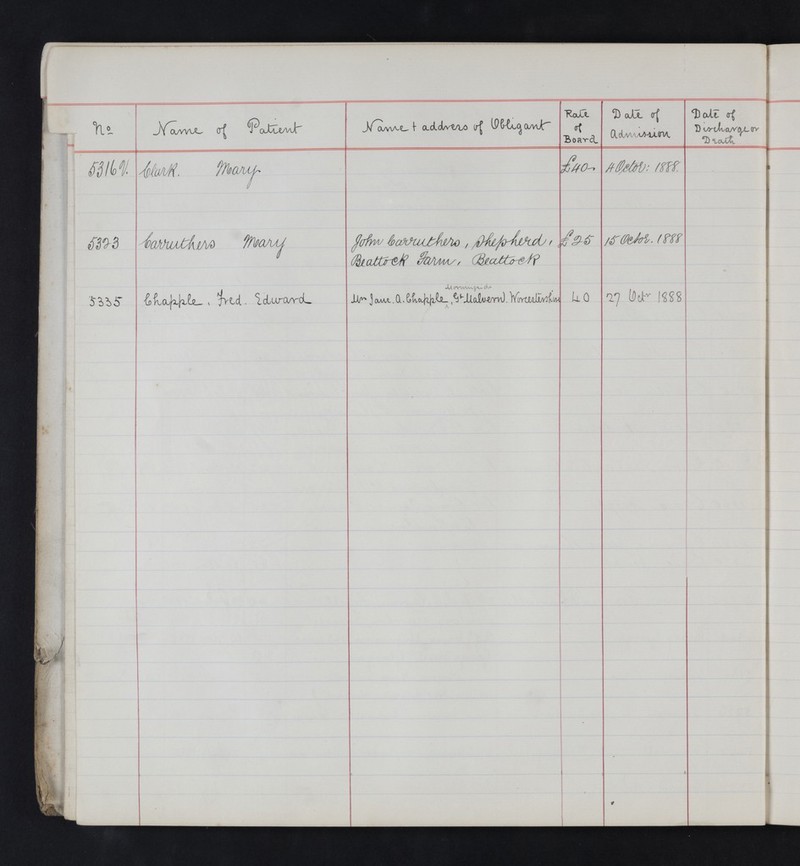 No Name of Patient Name + address of Obligant Rate of Board Date of Admission Date of Discharge or Death
5316 V. Clark. Mary £40 4 Octor: 1888.
5323 Carruthers Mary John Carruthers, Shepherd, £25 15 Octor. 1888
Beattock Farm, Beattock
5335 Chapple. Fred. Edward Mrs Jane. A. Chapple, Gt Malvern. Worcestershire 40 27 Octr 1888